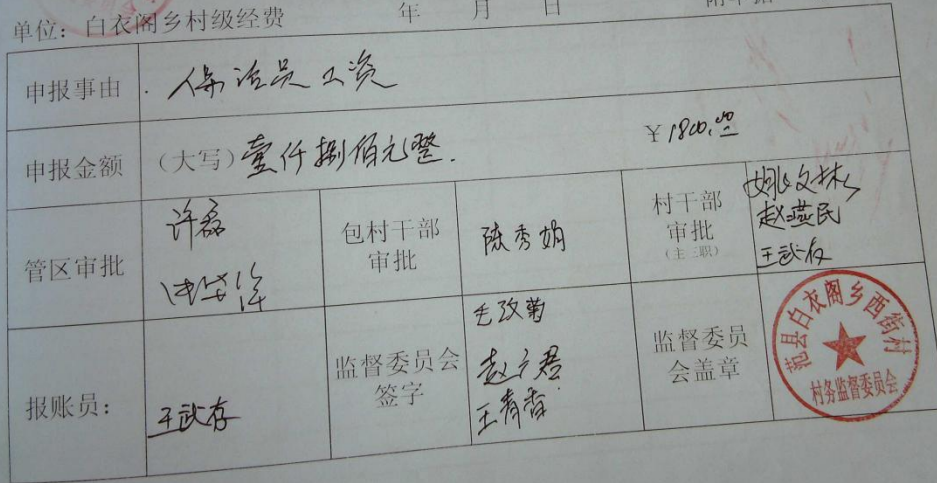 单位：白衣阁乡村级经费 年 月 日
申报事由 保洁员工资
申报金额 （大写）壹仟捌佰元整. ￥1800.00
管区审批 许磊
包村干部审批 陈秀娟
村干部审批（主三职） 姚文林 赵燕民 王武存
报账员： 王武存
监督委员会签字 毛改菊 赵广君 王青香
监督委员会盖章
范县白衣阁乡西街村
村务监督委员会